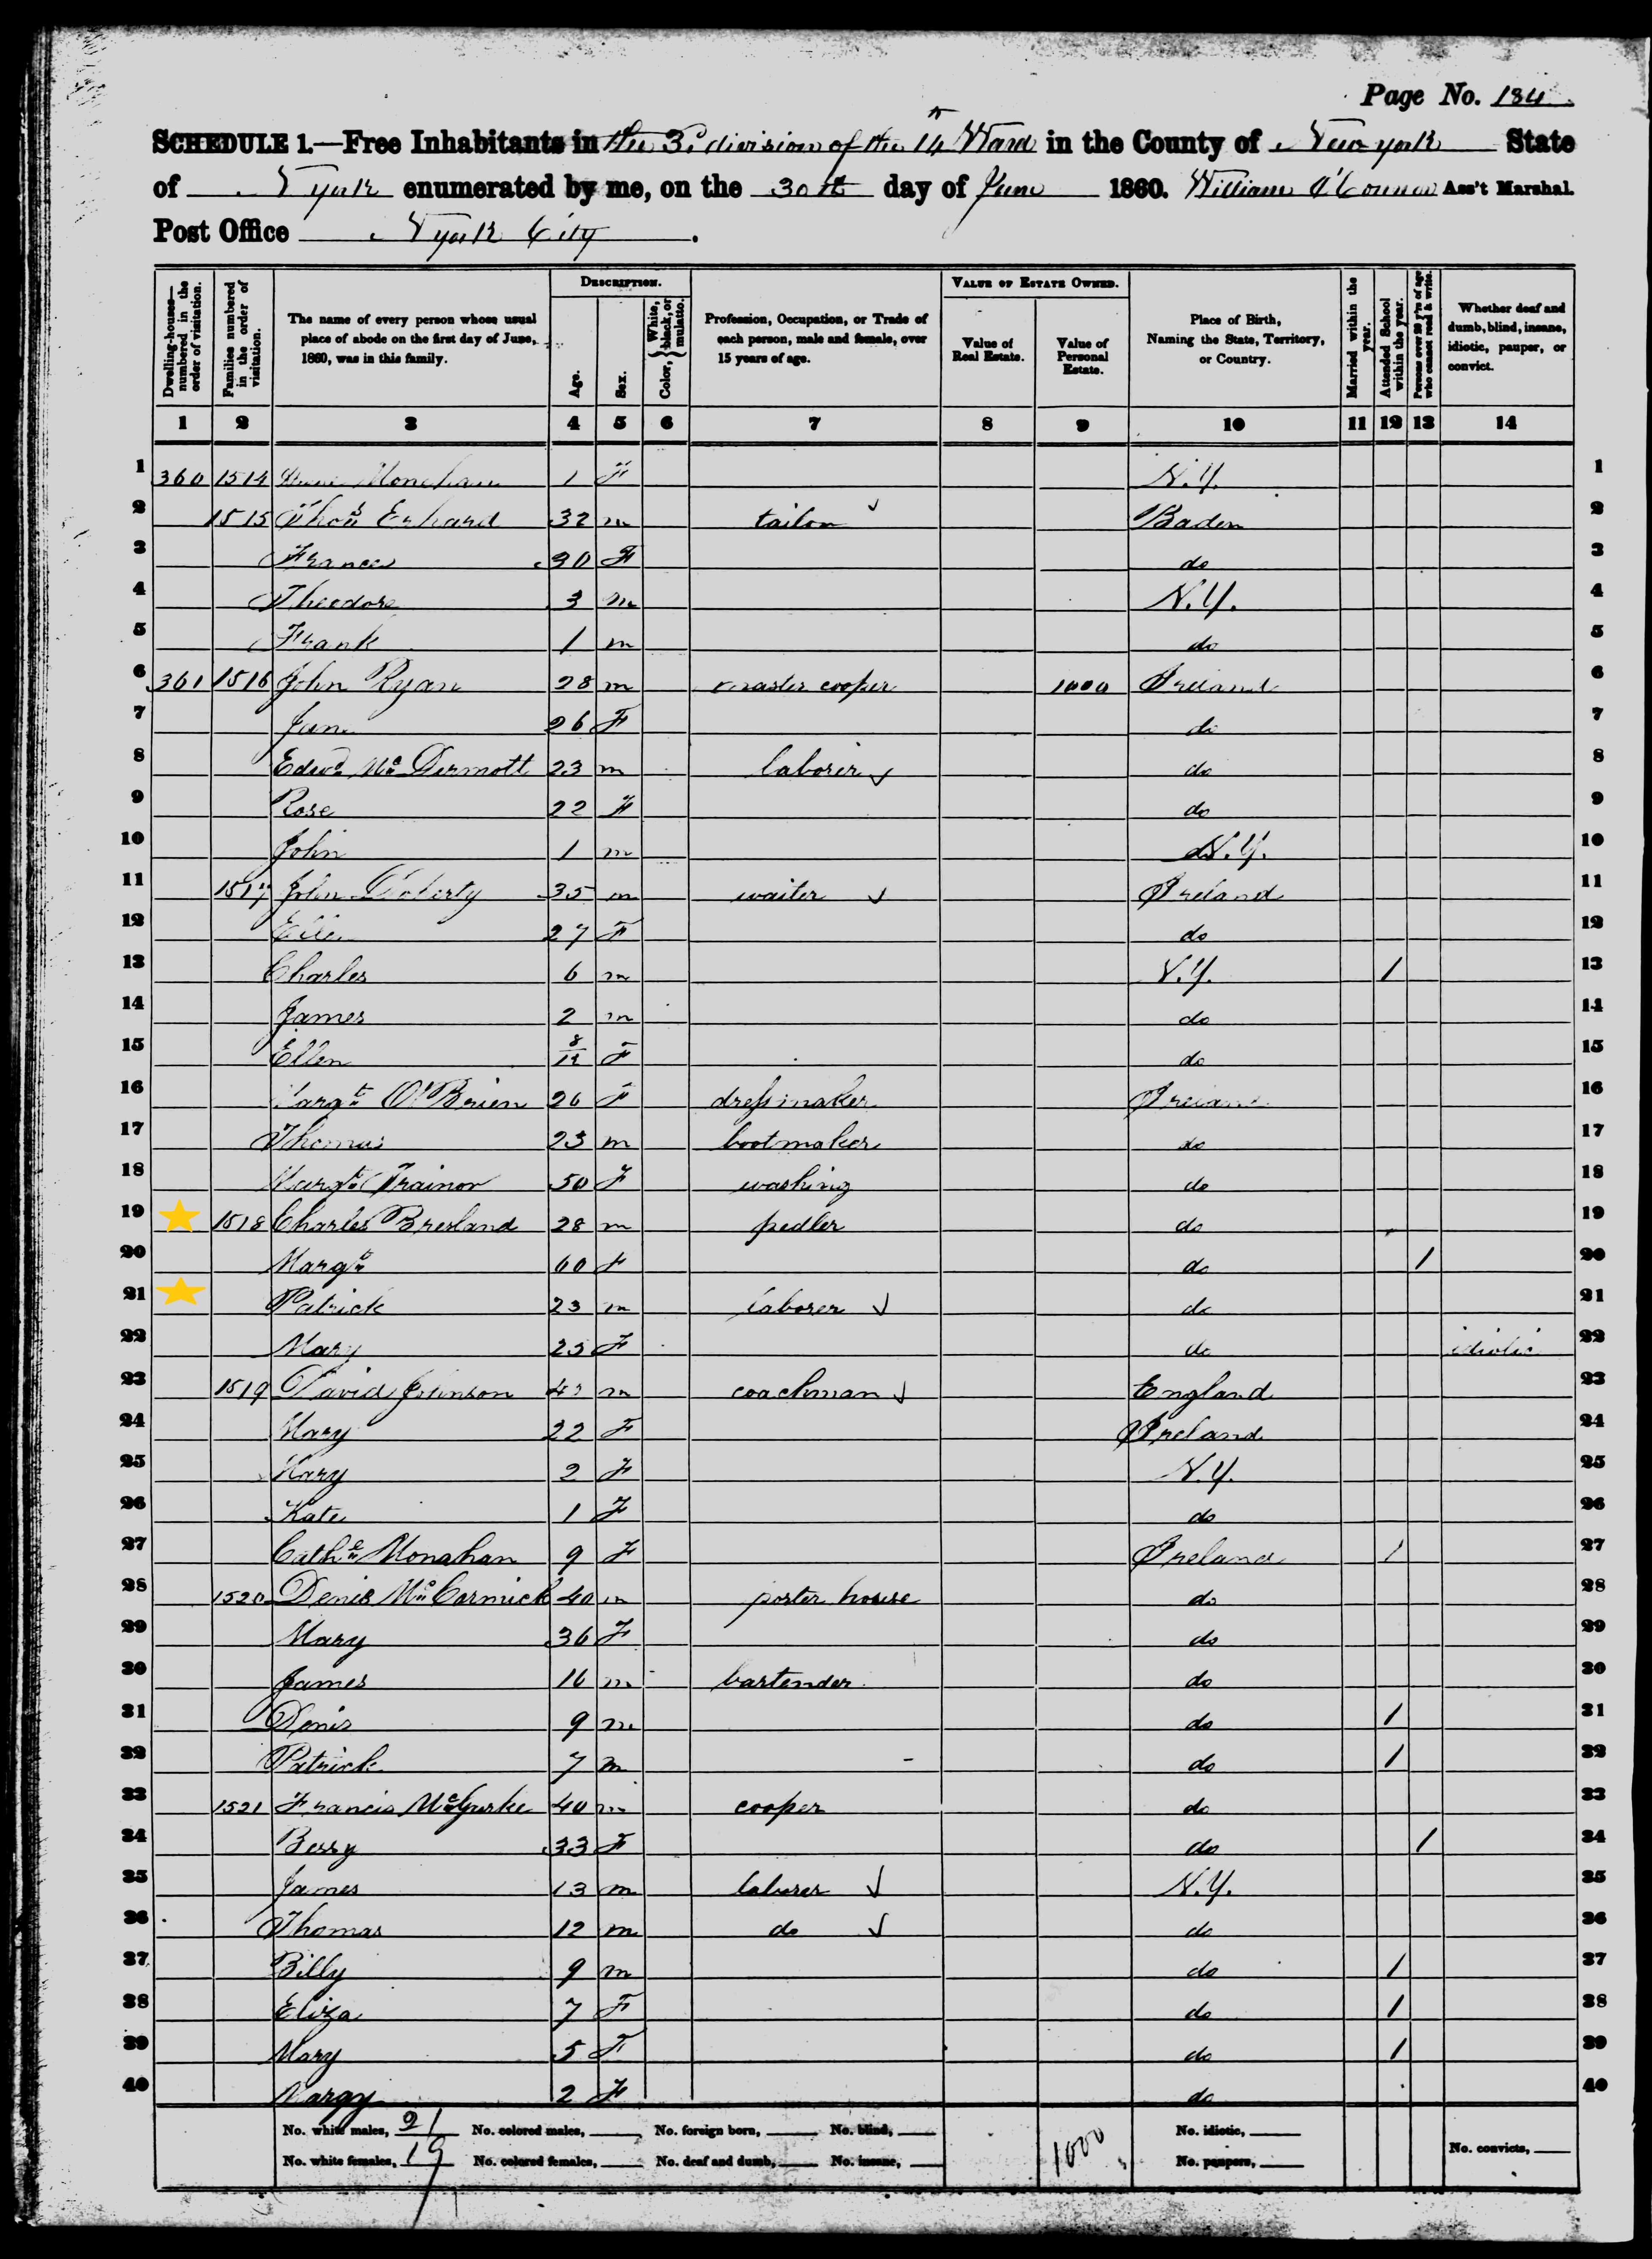 Page No. 184
SCHEDULE 1.—Free Inhabitants in the 3d division of the 14 Ward in the County of New york State
of N york enumerated by me, on the 30th day of June 1860. William O'Connor Ass't Marshal.
Post Office N york City.
Dwelling-houses—numbered in the order of visitation.
Families numbered in the order of visitation.
The name of every person whose usual place of abode on the first day of June, 1860, was in this family.
DESCRIPTION.
Age.
Sex.
Color, { White, black, or mulatto.
Profession, Occupation, or Trade of each person, male and female, over 15 years of age.
VALUE OF ESTATE OWNED.
Value of Real Estate.
Value of Personal Estate.
Place of Birth, Naming the State, Territory, or Country.
Married within the year.
Attended School within the year.
Persons over 20 y'rs of age who cannot read & write.
Whether deaf and dumb, blind, insane, idiotic, pauper, or convict.
1 2 3 4 5 6 7 8 9 10 11 12 13 14
1 360 1514 Monehan 1 F N.Y. 1
2 1515 Thos Erhard 32 m tailor Baden 2
3 Frances 30 F do 3
4 Theodore 3 m N.Y. 4
5 Frank 1 m do 5
6 361 1516 John Ryan 28 m master cooper 1000 Ireland 6
7 Jane 26 F do 7
8 Edwd McDermott 23 m laborer do 8
9 Rose 22 F do 9
10 John 1 m N.Y. 10
11 1517 John Doherty 35 m waiter Ireland 11
12 Ellen 27 F do 12
13 Charles 6 m N.Y. 1 13
14 James 2 m do 14
15 Ellen 8/12 F do 15
16 Margt O'Brien 26 F dressmaker Ireland 16
17 Thomas 23 m bootmaker do 17
18 Margt Trainor 50 F washing do 18
19 1518 Charles Bresland 28 m pedler do 19
20 Margt 60 F do 1 20
21 Patrick 23 m laborer do 21
22 Mary 25 F do idiotic 22
23 1519 David Johnson 43 m coachman England 23
24 Mary 22 F Ireland 24
25 Mary 2 F N.Y. 25
26 Kate 1 F do 26
27 Cathe Monahan 9 F Ireland 1 27
28 1520 Denis McCormick 40 m porter house do 28
29 Mary 36 F do 29
30 James 16 m bartender do 30
31 Denis 9 m do 1 31
32 Patrick 7 m do 1 32
33 1521 Francis McGurke 40 m cooper do 33
34 Bessy 33 F do 1 34
35 James 13 m laborer N.Y. 35
36 Thomas 12 m do do 36
37 Billy 9 m do 1 37
38 Eliza 7 F do 1 38
39 Mary 5 F do 1 39
40 Margy 2 F do 40
No. white males, 21 No. colored males, No. foreign born, No. blind, 1000 No. idiotic,
No. white females, 19 No. colored females, No. deaf and dumb, No. insane, No. paupers, No. convicts,